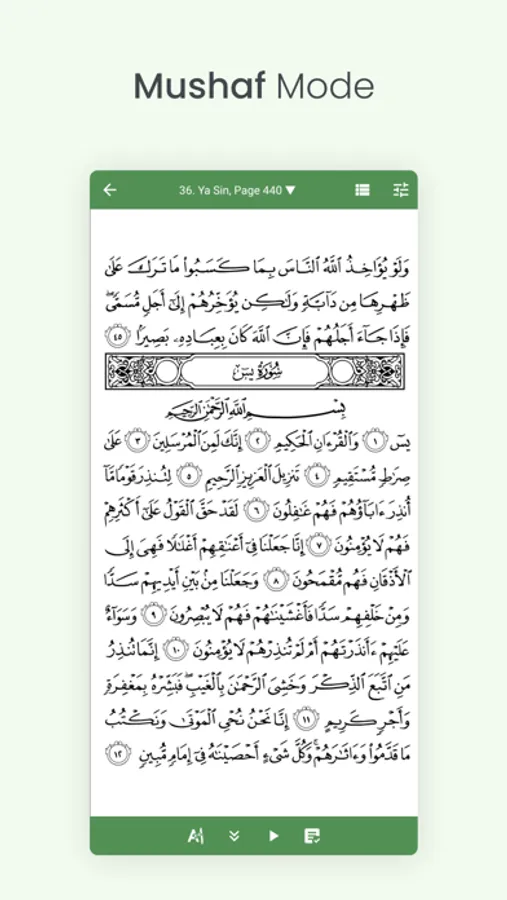 Mushaf Mode
36. Ya Sin, Page 440 ▼
وَلَوْ يُؤَاخِذُ اللَّهُ النَّاسَ بِمَا كَسَبُوا مَا تَرَكَ عَلَىٰ
ظَهْرِهَا مِن دَابَّةٍ وَلَٰكِن يُؤَخِّرُهُمْ إِلَىٰ أَجَلٍ مُّسَمًّى ۖ
فَإِذَا جَاءَ أَجَلُهُمْ فَإِنَّ اللَّهَ كَانَ بِعِبَادِهِ بَصِيرًا ٤٥
سُورَةُ يسٓ
بِسْمِ اللَّهِ الرَّحْمَٰنِ الرَّحِيمِ
يسٓ ١ وَالْقُرْءَانِ الْحَكِيمِ ٢ إِنَّكَ لَمِنَ الْمُرْسَلِينَ ٣ عَلَىٰ
صِرَٰطٍ مُّسْتَقِيمٍ ٤ تَنزِيلَ الْعَزِيزِ الرَّحِيمِ ٥ لِتُنذِرَ قَوْمًا مَّا
أُنذِرَ ءَابَاؤُهُمْ فَهُمْ غَٰفِلُونَ ٦ لَقَدْ حَقَّ الْقَوْلُ عَلَىٰ أَكْثَرِهِمْ
فَهُمْ لَا يُؤْمِنُونَ ٧ إِنَّا جَعَلْنَا فِي أَعْنَٰقِهِمْ أَغْلَٰلًا فَهِيَ إِلَى
الْأَذْقَانِ فَهُم مُّقْمَحُونَ ٨ وَجَعَلْنَا مِن بَيْنِ أَيْدِيهِمْ سَدًّا
وَمِنْ خَلْفِهِمْ سَدًّا فَأَغْشَيْنَٰهُمْ فَهُمْ لَا يُبْصِرُونَ ٩ وَسَوَاءٌ
عَلَيْهِمْ ءَأَنذَرْتَهُمْ أَمْ لَمْ تُنذِرْهُمْ لَا يُؤْمِنُونَ ١٠ إِنَّمَا تُنذِرُ
مَنِ اتَّبَعَ الذِّكْرَ وَخَشِيَ الرَّحْمَٰنَ بِالْغَيْبِ ۖ فَبَشِّرْهُ بِمَغْفِرَةٍ
وَأَجْرٍ كَرِيمٍ ١١ إِنَّا نَحْنُ نُحْيِ الْمَوْتَىٰ وَنَكْتُبُ
مَا قَدَّمُوا وَءَاثَٰرَهُمْ ۚ وَكُلَّ شَيْءٍ أَحْصَيْنَٰهُ فِي إِمَامٍ مُّبِينٍ ١٢